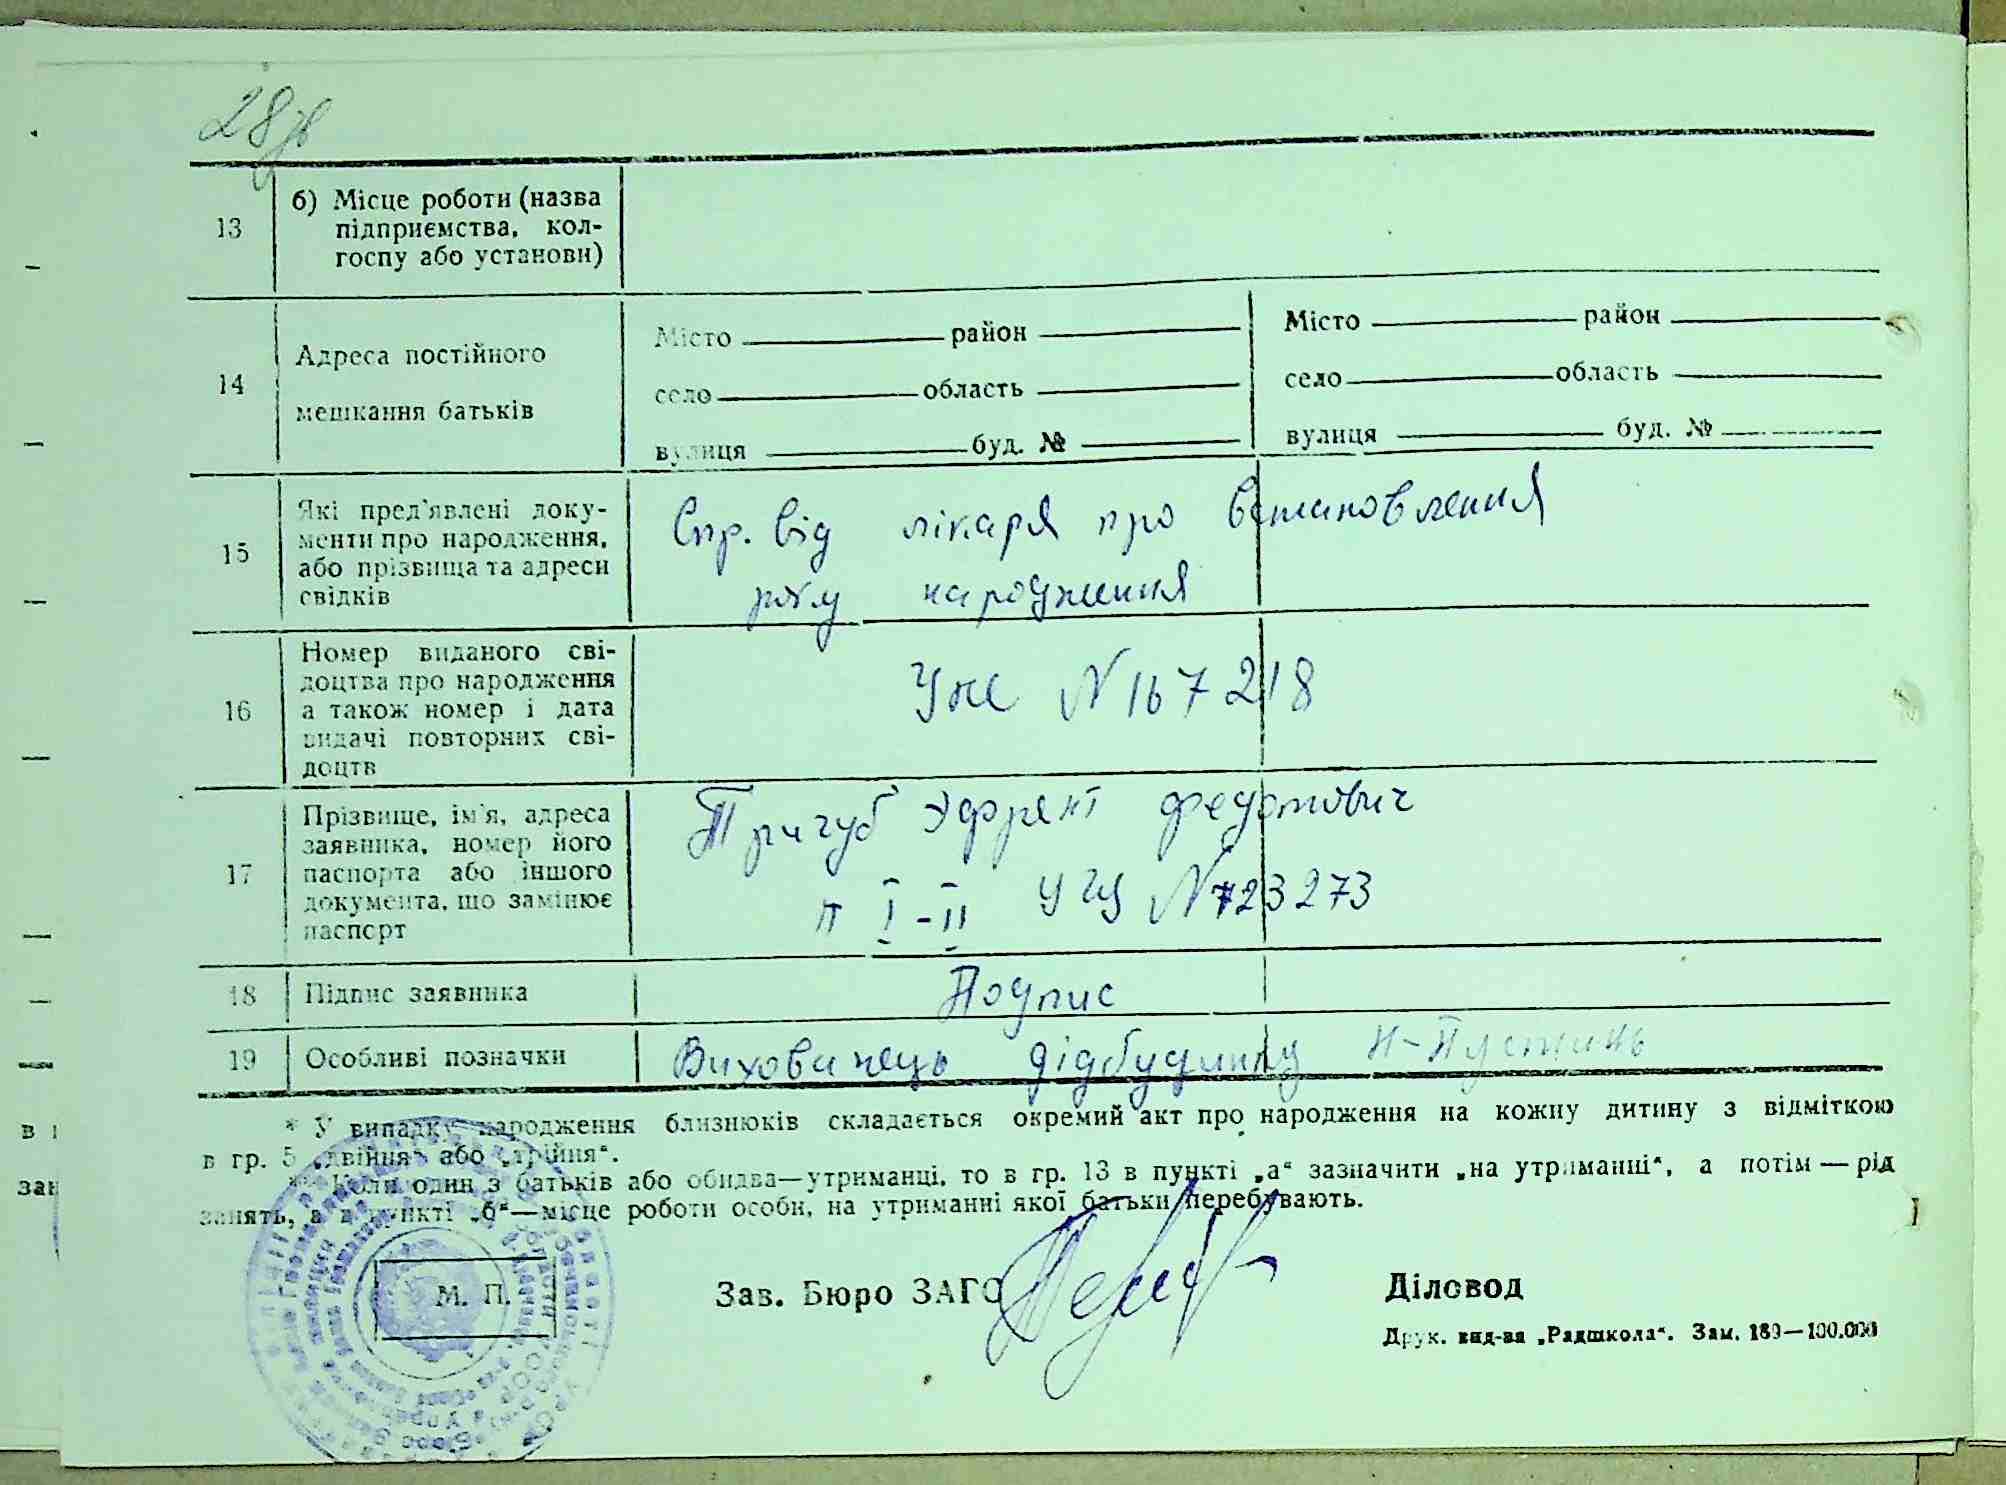 28зв
13
б) Місце роботи (назва
підприємства, кол-
госпу або установи)
14
Адреса постійного
мешкання батьків
Місто район
село область
вулиця буд. №
Місто район
село область
вулиця буд. №
15
Які пред'явлені доку-
менти про народження,
або прізвища та адреси
свідків
Спр. від лікаря про встановлення
року народження
16
Номер виданого сві-
доцтва про народження
а також номер і дата
видачі повторних сві-
доцтв
N 167218
17
Прізвище, ім'я, адреса
заявника, номер його
паспорта або іншого
документа, що замінює
паспорт
Пригуб Федотович
п I-II N 723273
18
Підпис заявника
Подпис
19
Особливі позначки
Вихованець дідбудинку Н-Пустинь
* У випадку народження близнюків складається окремий акт про народження на кожну дитину з відміткою
в гр. 5 „двійня“ або „трійня“.
** Коли один з батьків або обидва—утриманці, то в гр. 13 в пункті „а“ зазначити „на утриманні“, а потім — рід
занять, а в пункті „б“—місце роботи особи, на утриманні якої батьки перебувають.
М. П.
Зав. Бюро ЗАГС
Діловод
Друк. вид-ва „Радшкола“. Зам. 189—100.000